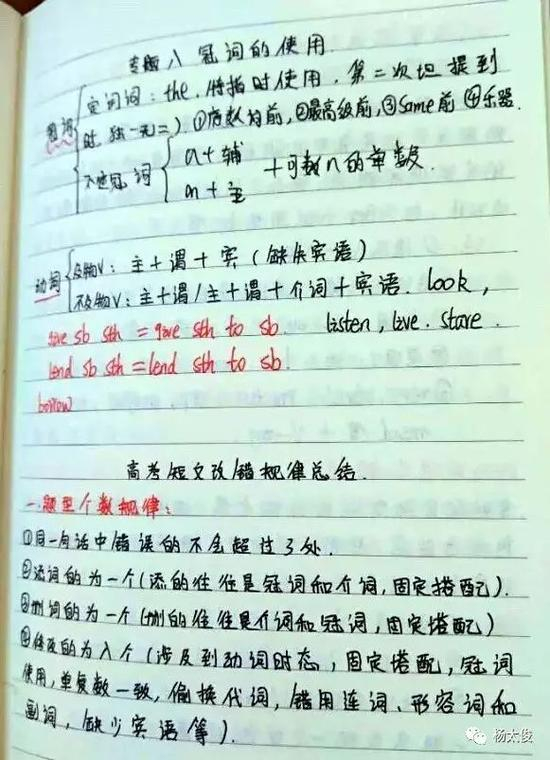 专题八 冠词的使用.
冠词 定冠词: the. 特指时使用. 第二次提到
时. 独一无二) ①序数词前, ②最高级前, ③Same前 ④乐器.
不定冠词 a+辅
an+主
+可数n的单数.
动词 及物V: 主+谓+宾 (缺失宾语)
不及物V: 主+谓/主+谓+介词+宾语. look,
give sb sth = give sth to sb. listen, live. stare.
lend sb sth = lend sth to sb.
borrow
高考短文改错规律总结.
一.题型个数规律:
①同一句话中错误的不会超过3处.
②添词的为一个(添的往往是冠词和介词,固定搭配).
③删词的为一个(删的往往是介词和冠词,固定搭配)
④修改的为八个(涉及到动词时态,固定搭配,冠词
使用,单复数一致,偷换代词,错用连词、形容词和
副词,缺少宾语等).
杨太俊